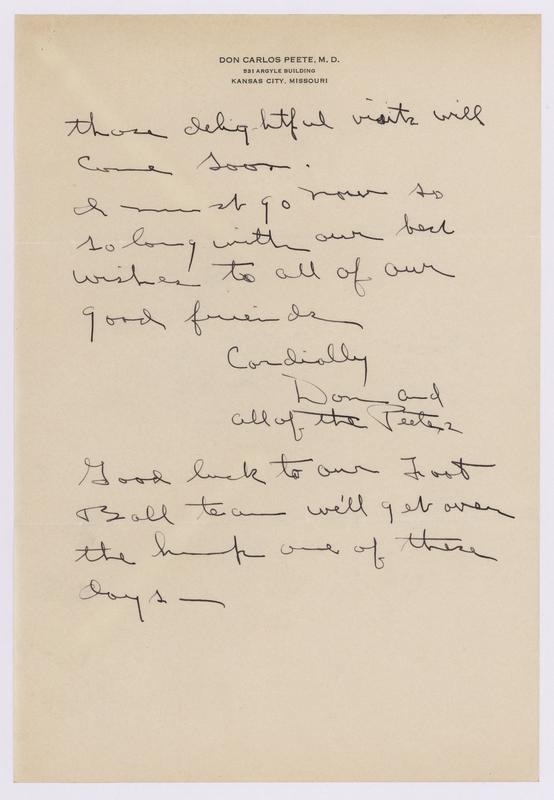 DON CARLOS PEETE, M. D.
931 ARGYLE BUILDING
KANSAS CITY, MISSOURI
those delightful visits will
come soon.
I must go now so
so long with our best
wishes to all of our
good friends
Cordially
Don and
all of the Peetes
Good luck to our Foot
Ball team we'll get over
the hump one of these
days —